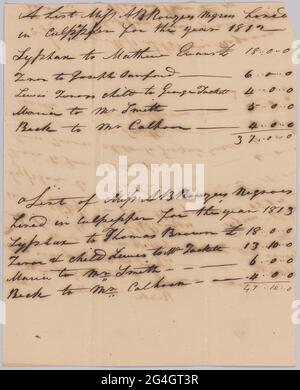 A List Miss A B Rouzees Negroes hired
in Culpepper for the year 1812
Syphax to Mathew Evans £ 18.0.0
Zenor to Joseph Sanford 6.0.0
Lewis Zenors child to George Tackett 4.0.0
Maria to Mr Smith 5.0.0
Beck to Mr Calhoon 4.0.0
37.0.0
a List of Miss A B Rouzees Negroes
hired in Culpepper for the year 1813
Syphax to Thomas Brown £ 18.0.0
Zenor & child Lewis to Tackett 13.10.0
Maria to Mr Smith 6.0.0
Beck to Mr Calhoon 4.0.0
47.10.0
alamy
Image ID: 2G4GT3R
www.alamy.com